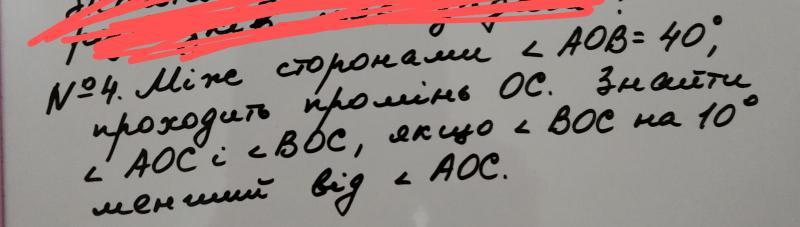 №4. Між сторонами ∠ AOB = 40°,
проходить промінь OC. Знайти
∠ AOC і ∠ BOC, якщо ∠ BOC на 10°
менший від ∠ AOC.